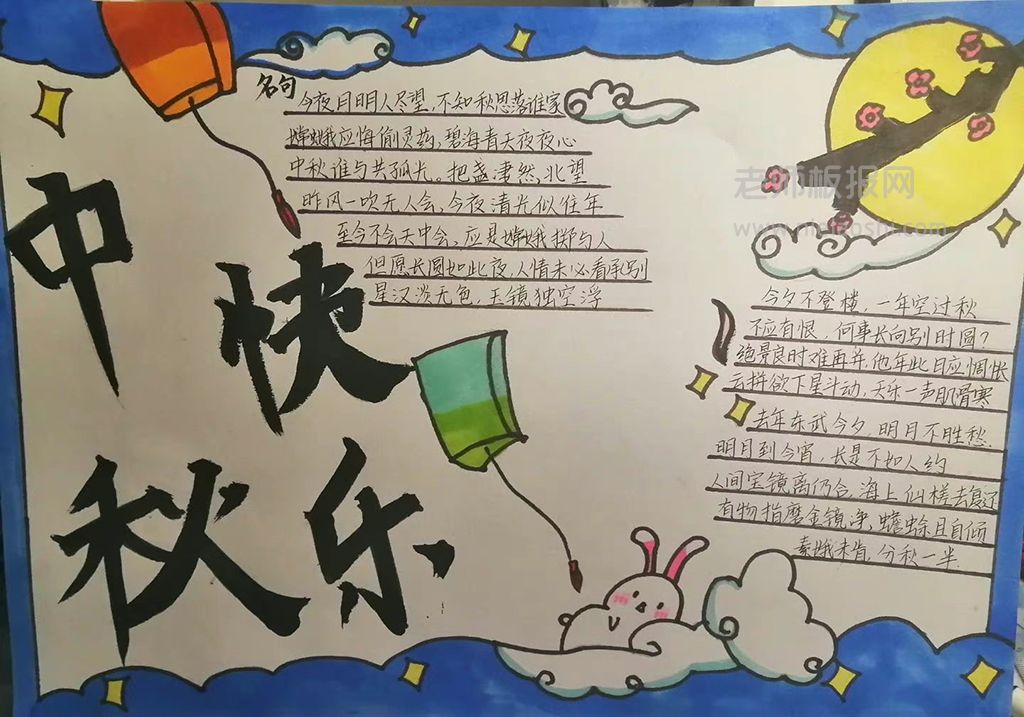 中秋
快乐
名句
今夜月明人尽望，不知秋思落谁家
嫦娥应悔偷灵药，碧海青天夜夜心
中秋谁与共孤光。把盏凄然，北望
昨风一吹无人会，今夜清光似往年
至今不会天中事，应是嫦娥掷与人
但愿长圆如此夜，人情未必看承别
星汉淡无色，玉镜独空浮
今夕不登楼，一年空过秋
不应有恨，何事长向别时圆？
绝景良时难再并，他年此日应惆怅
云拼欲下星斗动，天乐一声肌骨寒
去年东武今夕，明月不胜愁.
明月到今宵，长是不如人约
人间宝镜离仍合，海上仙槎去复还
有物指磨金镜净，蟾蜍且自倾
素娥未肯，分秋一半.
老师板报网